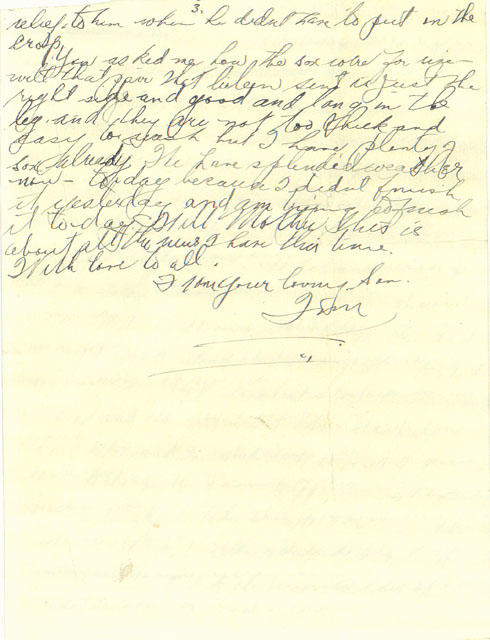 3.
relief to him when he didn't have to put in the
crop.
You asked me how the sox were for size
well that pair Aileen sent is just the
right size and good and long in the
leg and they are not too thick and
easy to wash but I have plenty of
sox already. We have splended weather
now - to-day because I didn't finish
it yesterday and am trying to finish
it to-day. Well Mother this is
about all the news I have this time.
With love to all.
I am your loving Son.
Tom